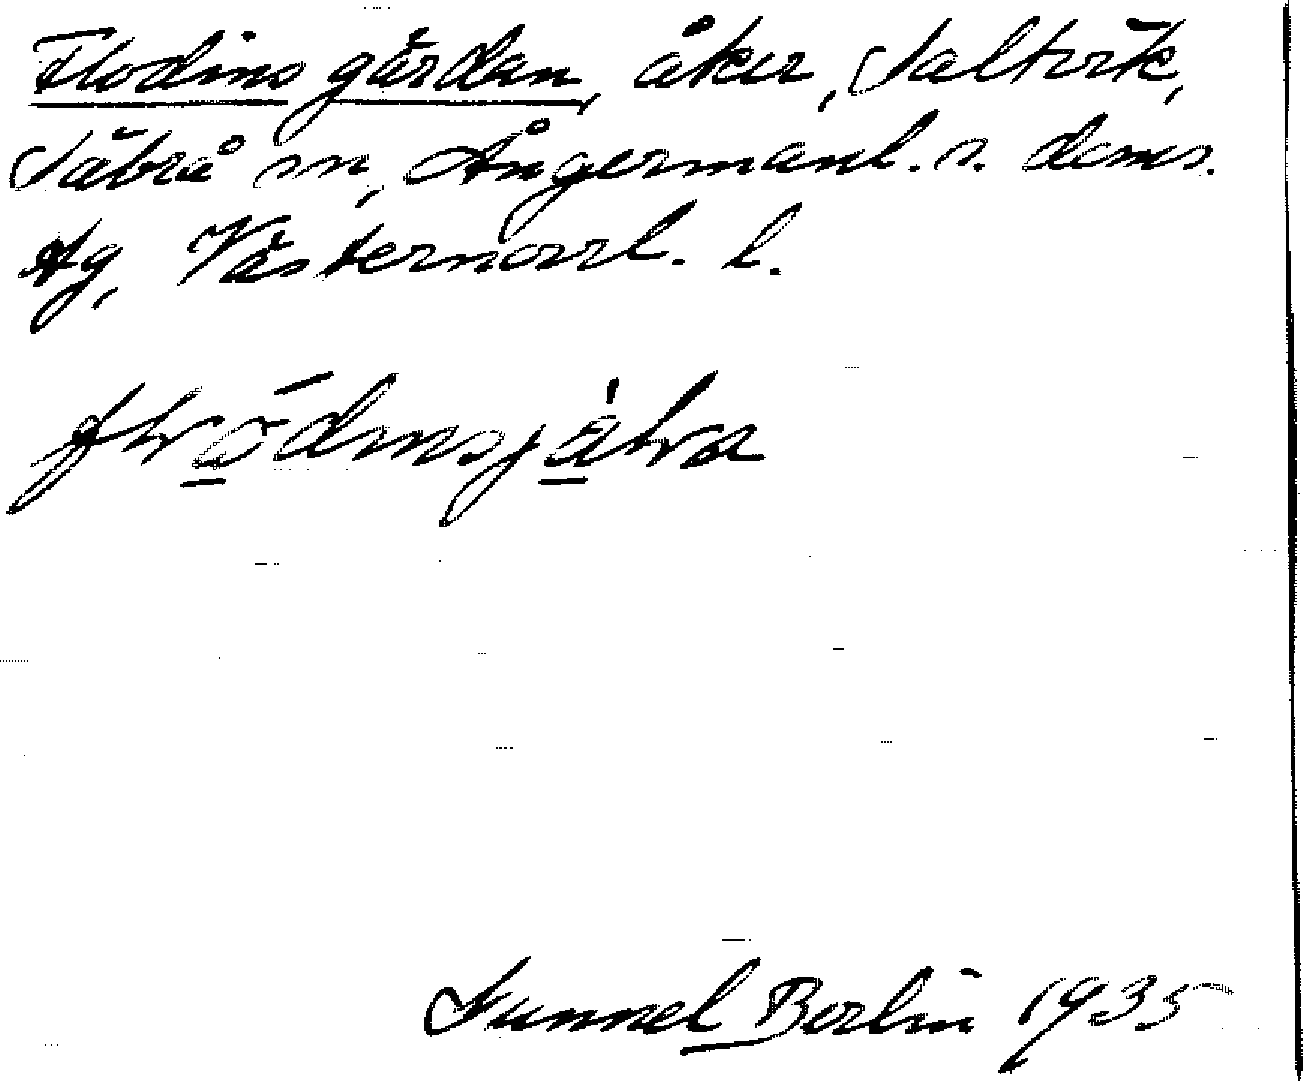 Flodins gården, åker, Saltvik,
Säbrå sn, Ångermanl. s. doms.
Ag, Västernorrl. l.
Gunnel Berlin 1935